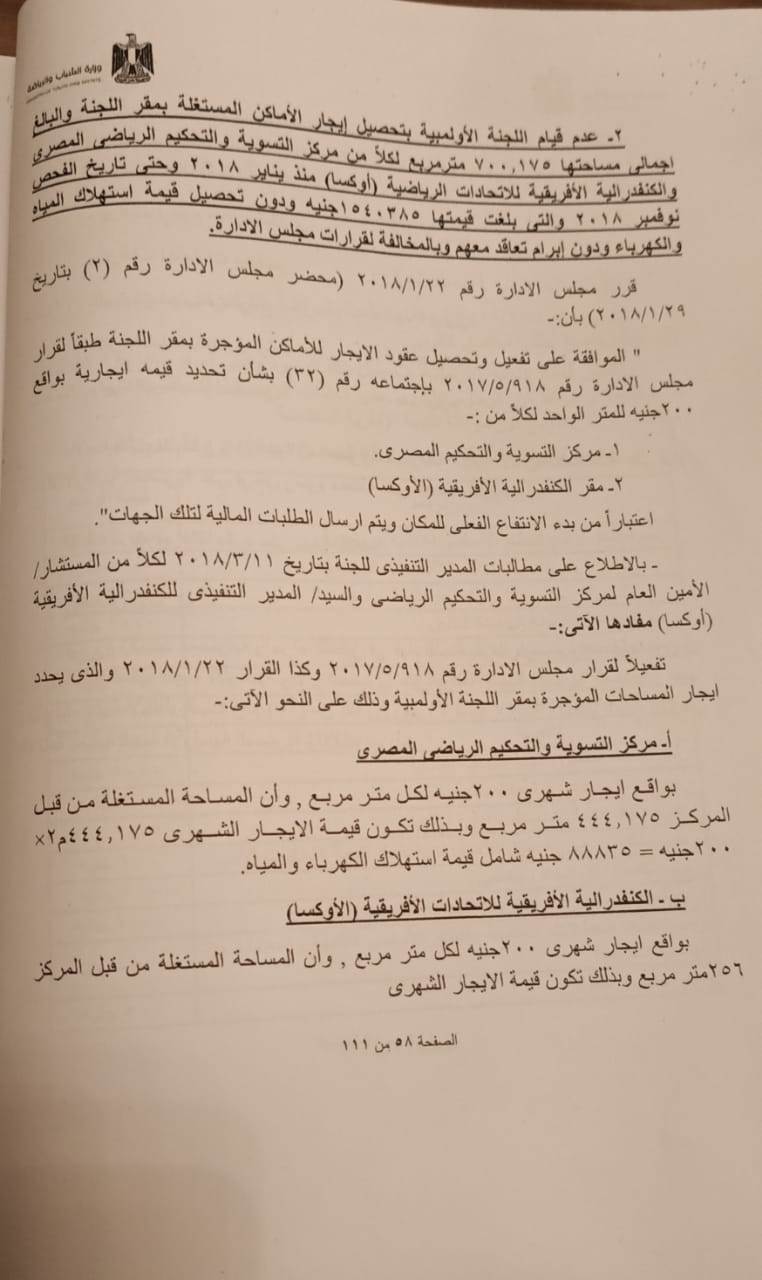 وزارة الشباب والرياضة
٢- عدم قيام اللجنة الأولمبية بتحصيل إيجار الأماكن المستغلة بمقر اللجنة والبالغ
اجمالى مساحتها ٧٠٠,١٧٥ مترمربع لكلاً من مركز التسوية والتحكيم الرياضى المصرى
والكنفدرالية الأفريقية للاتحادات الرياضية (أوكسا) منذ يناير ٢٠١٨ وحتى تاريخ الفحص
نوفمبر ٢٠١٨ والتى بلغت قيمتها ١٥٤٠٣٨٥جنيه ودون تحصيل قيمة استهلاك المياه
والكهرباء ودون إبرام تعاقد معهم وبالمخالفة لقرارات مجلس الادارة.
قرر مجلس الادارة رقم ٢٠١٨/١/٢٢ (محضر مجلس الادارة رقم (٢) بتاريخ
٢٠١٨/١/٢٩) بأن:-
" الموافقة على تفعيل وتحصيل عقود الايجار للأماكن المؤجرة بمقر اللجنة طبقاً لقرار
مجلس الادارة رقم ٢٠١٧/٥/٩١٨ بإجتماعه رقم (٣٢) بشأن تحديد قيمه ايجارية بواقع
٢٠٠جنيه للمتر الواحد لكلاً من :-
١- مركز التسوية والتحكيم المصرى.
٢- مقر الكنفدرالية الأفريقية (الأوكسا)
اعتباراً من بدء الانتفاع الفعلى للمكان ويتم ارسال الطلبات المالية لتلك الجهات".
- بالاطلاع على مطالبات المدير التنفيذى للجنة بتاريخ ٢٠١٨/٣/١١ لكلاً من المستشار/
الأمين العام لمركز التسوية والتحكيم الرياضى والسيد/ المدير التنفيذى للكنفدرالية الأفريقية
(أوكسا) مفادها الآتى:-
تفعيلاً لقرار مجلس الادارة رقم ٢٠١٧/٥/٩١٨ وكذا القرار ٢٠١٨/١/٢٢ والذى يحدد
ايجار المساحات المؤجرة بمقر اللجنة الأولمبية وذلك على النحو الآتى:-
أ- مركز التسوية والتحكيم الرياضى المصرى
بواقع ايجار شهرى ٢٠٠جنيه لكل متر مربع , وأن المساحة المستغلة من قبل
المركز ٤٤٤,١٧٥ متر مربع وبذلك تكون قيمة الايجار الشهرى ٤٤٤,١٧٥م٢×
٢٠٠جنيه = ٨٨٨٣٥ جنيه شامل قيمة استهلاك الكهرباء والمياه.
ب - الكنفدرالية الأفريقية للاتحادات الأفريقية (الأوكسا)
بواقع ايجار شهرى ٢٠٠جنيه لكل متر مربع , وأن المساحة المستغلة من قبل المركز
٢٥٦متر مربع وبذلك تكون قيمة الايجار الشهرى
الصفحة ٥٨ من ١١١